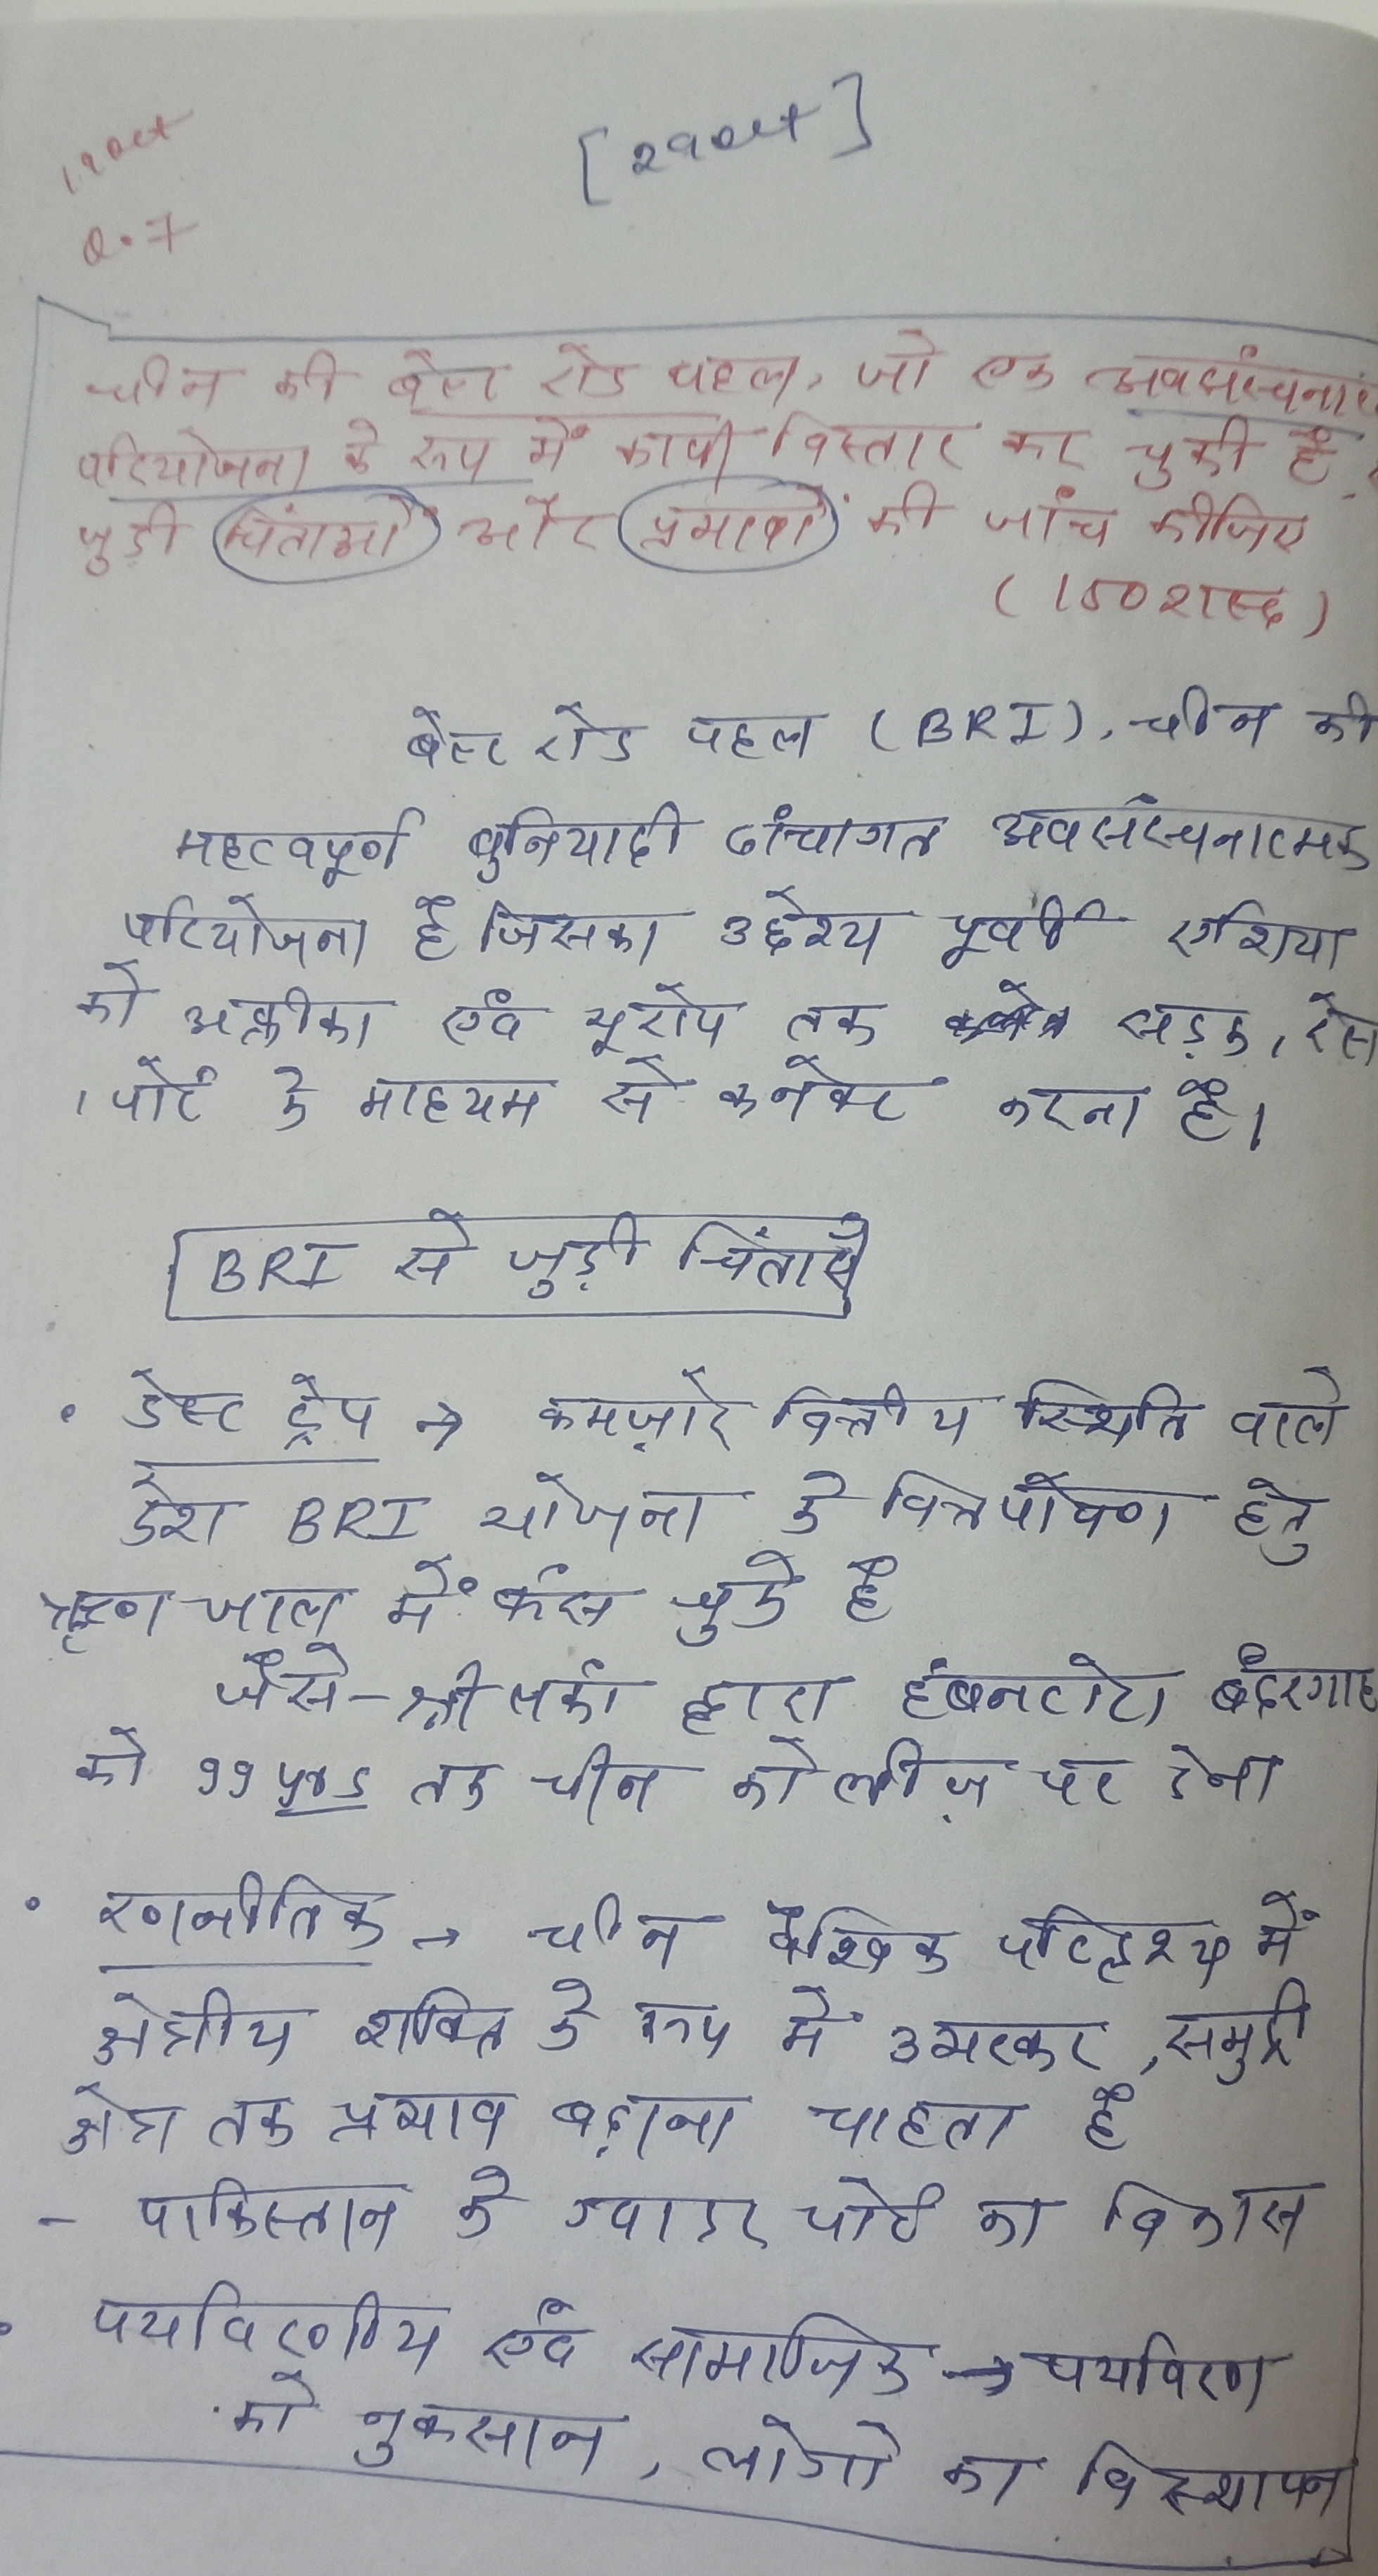 [29 oct]
19 oct
Q.7
चीन की बेल्ट रोड पहल, जो एक अवसंरचना
परियोजना के रूप में काफी विस्तार कर चुकी है,
जुडी चिंताओं और प्रभावों की जांच कीजिए
(150 शब्द)
बेल्ट रोड पहल (BRI), चीन की
महत्वपूर्ण बुनियादी ढांचागत अवसंरचनात्मक
परियोजना है जिसका उद्देश्य पूर्वी एशिया
को अफ्रीका एवं यूरोप तक सड़क, रेल
, पोर्ट के माध्यम से कनेक्ट करना है।
BRI से जुड़ी चिंताएं
• डेब्ट ट्रेप → कमज़ोर वित्तीय स्थिति वाले
देश BRI योजना के वित्तपोषण हेतु
ऋण जाल में फंस चुके है
जैसे - श्रीलंका द्वारा हंबनटोटा बंदरगाह
को 99 तक चीन को लीज़ पर देना
• रणनीतिक → चीन वैश्विक परिदृश्य में
क्षेत्रीय शक्ति के रूप में उभरकर, समुद्री
क्षेत्र तक प्रभाव बढ़ाना चाहता है
- पाकिस्तान के ग्वादर पोर्ट का विकास
• पर्यावरणीय एवं सामाजिक → पर्यावरण
को नुकसान, लोगो का विस्थापन